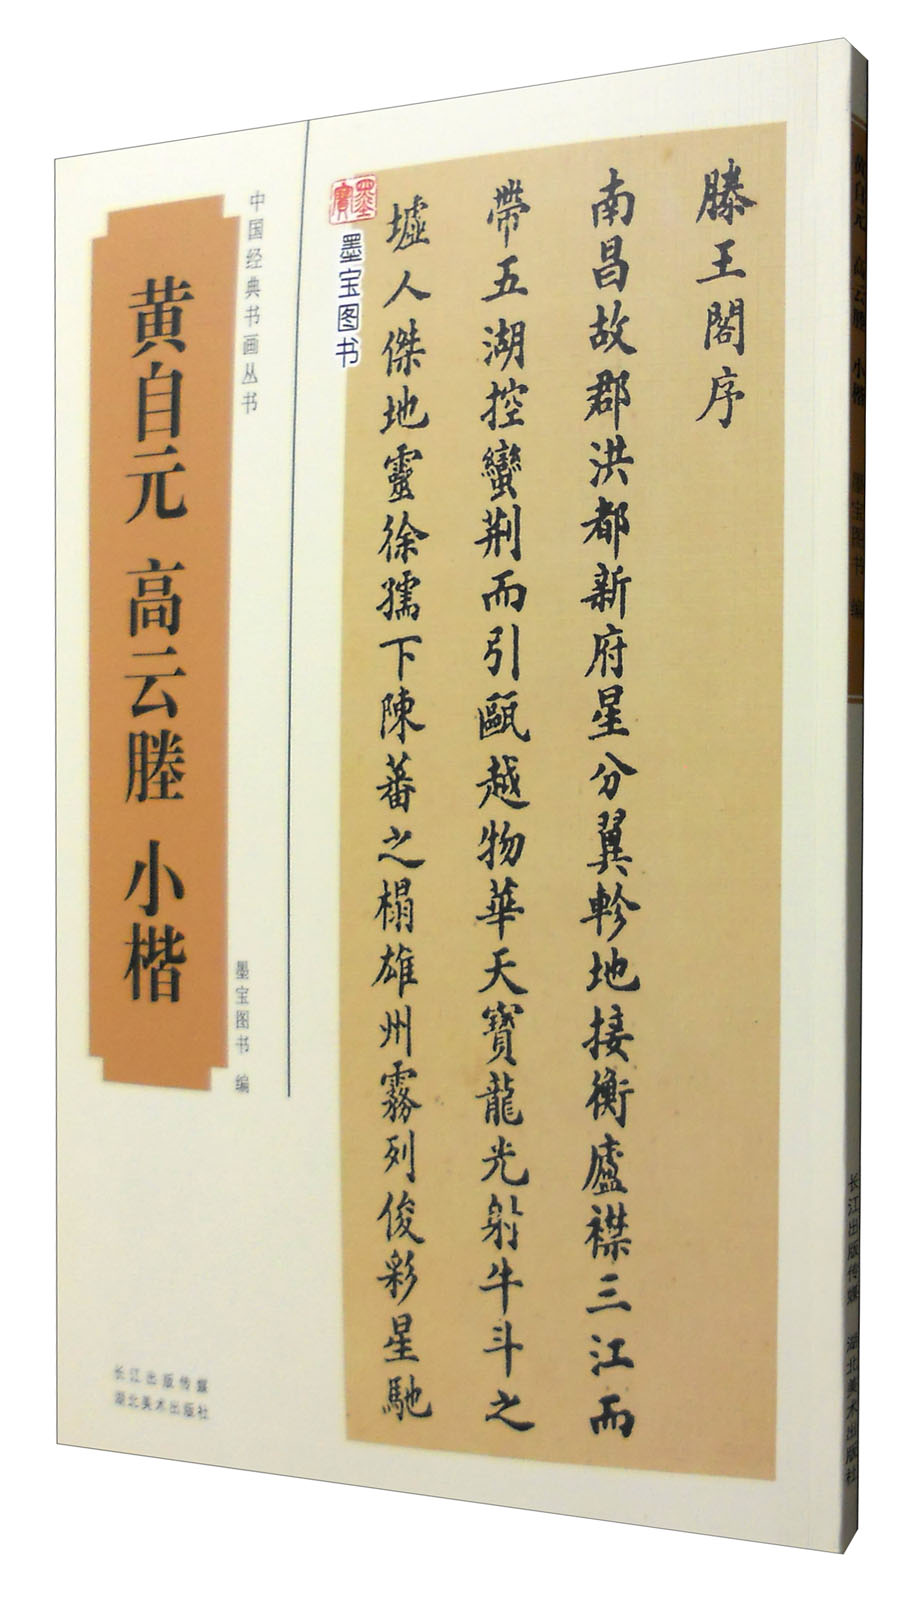 中国经典书画丛书
黄自元 高云塍 小楷
墨宝图书 编
长江出版传媒
湖北美术出版社
墨寶
墨宝图书
滕王閣序
南昌故郡洪都新府星分翼軫地接衡廬襟三江而
帶五湖控蠻荆而引甌越物華天寶龍光射牛斗之
墟人傑地靈徐孺下陳蕃之榻雄州霧列俊彩星馳
黄自元 高云塍 小楷 墨宝图书 编
长江出版传媒 湖北美术出版社